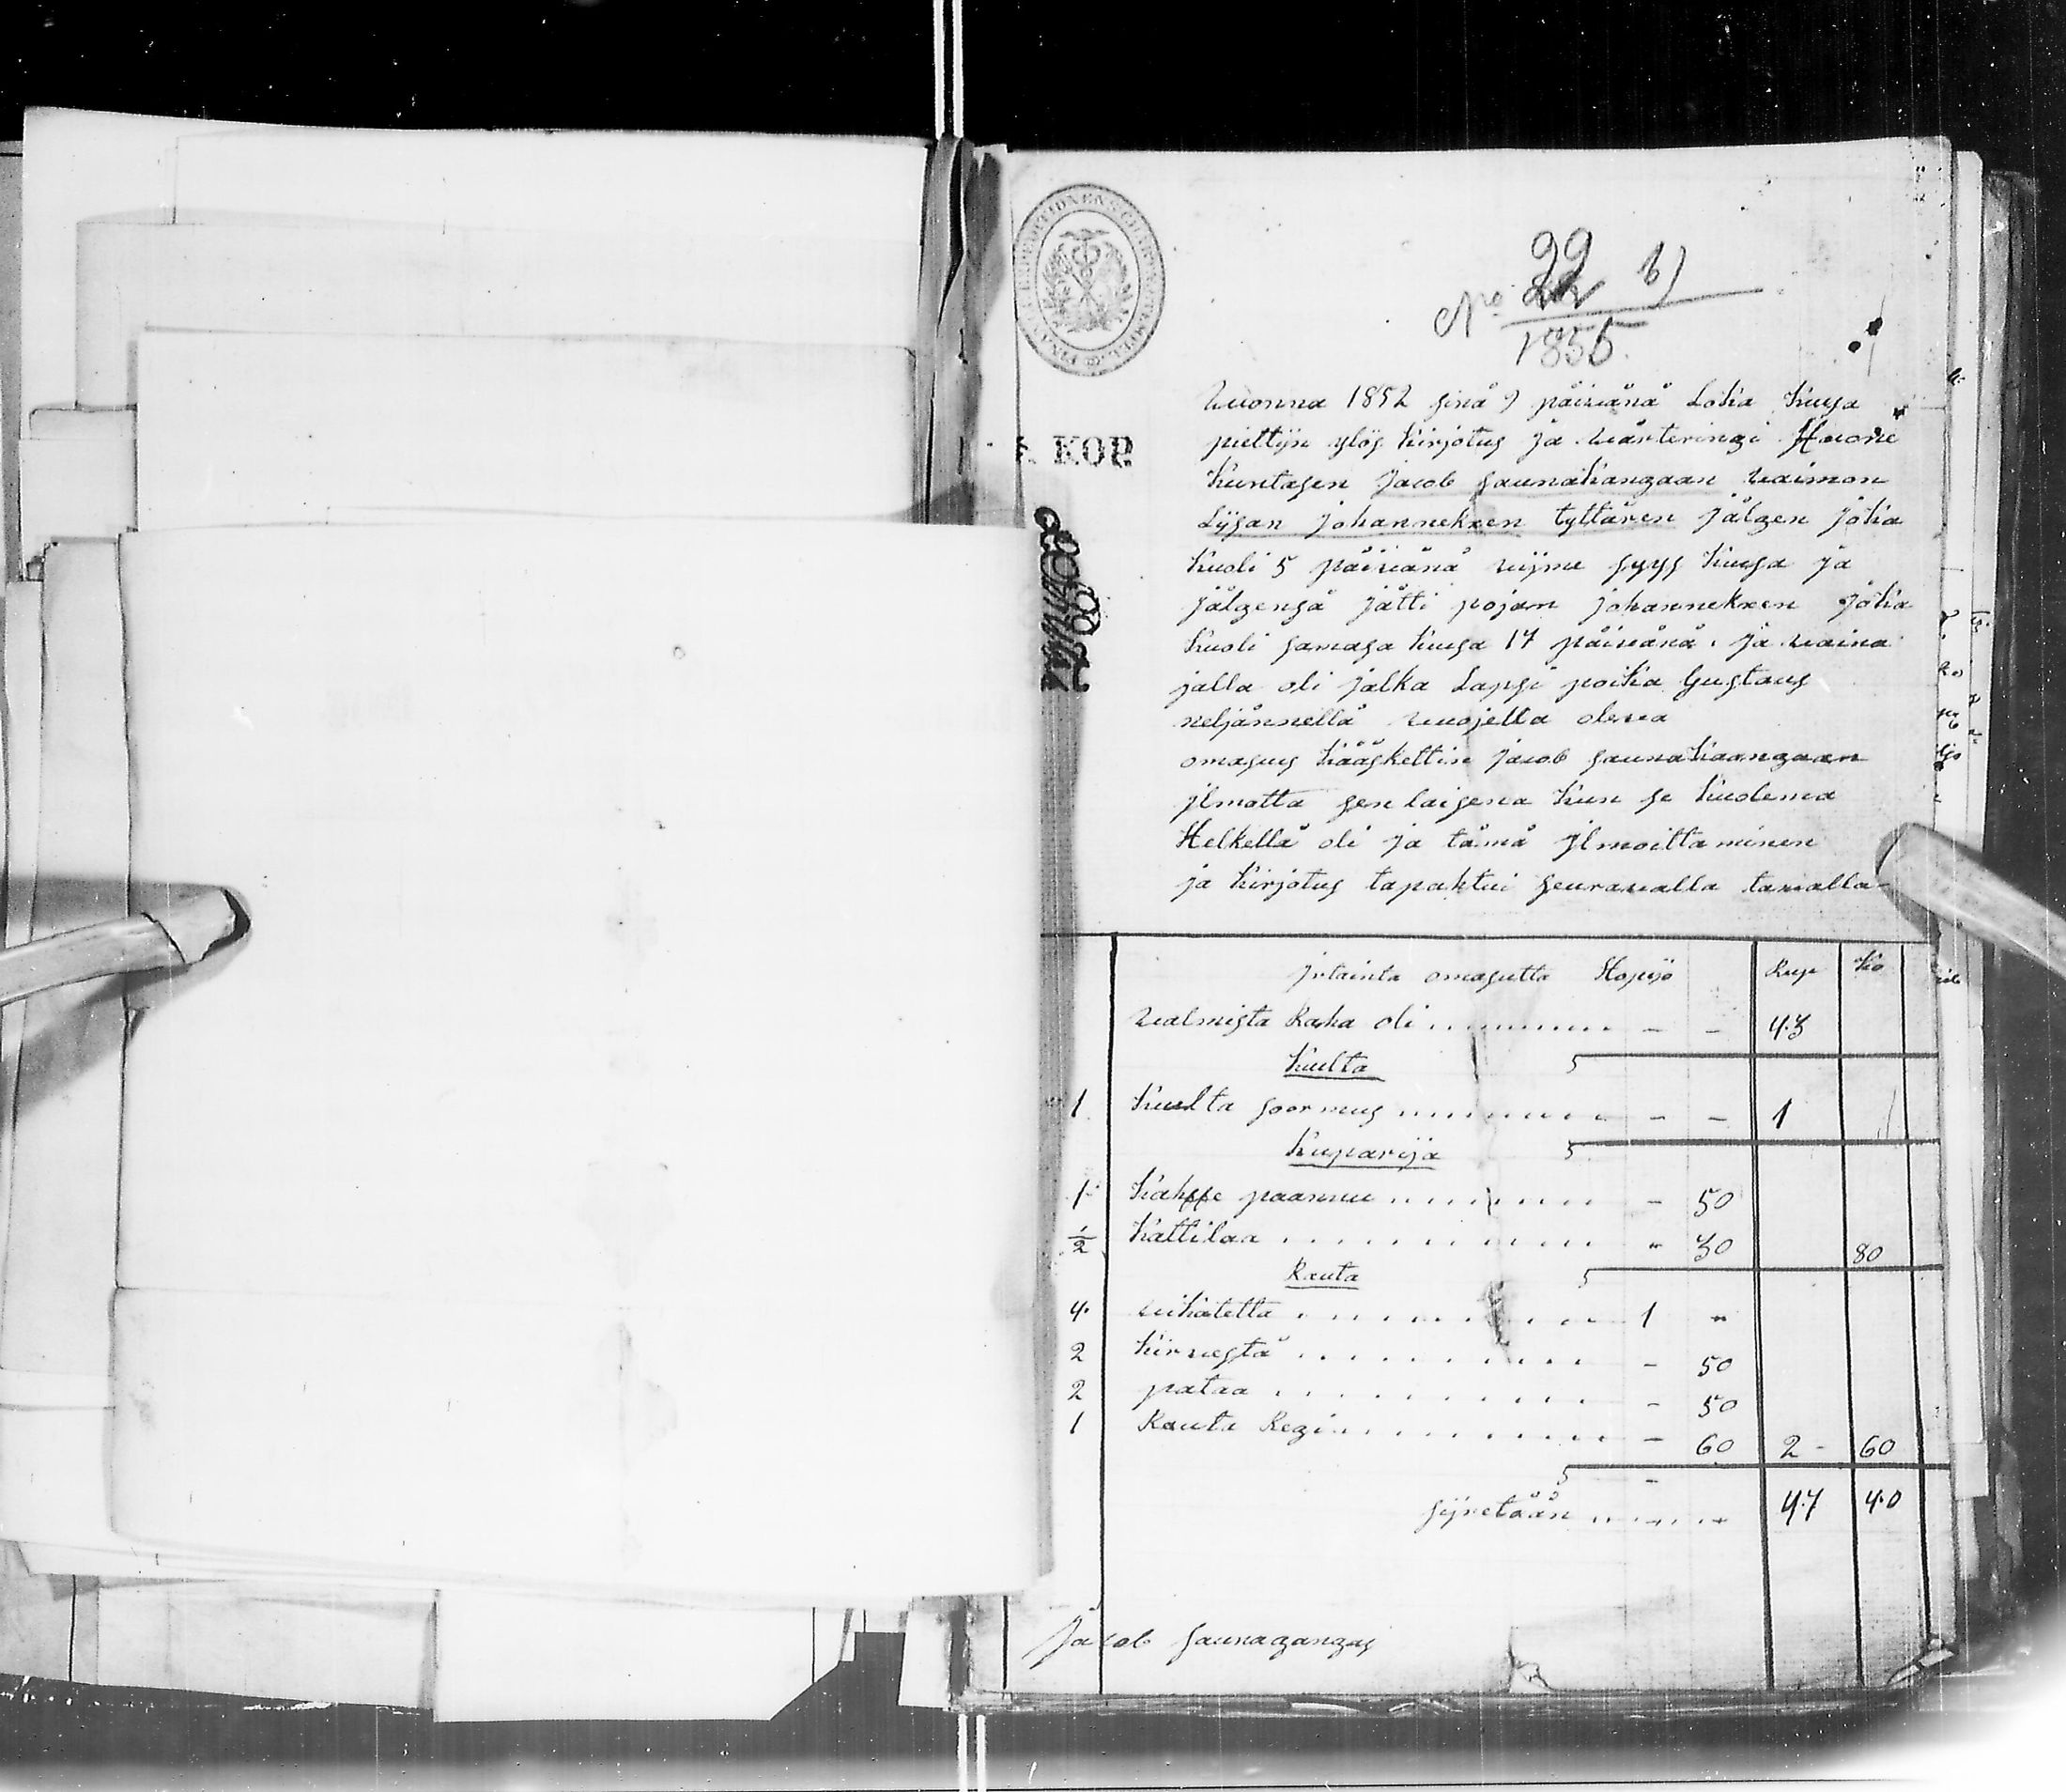 22 b)
No 22
1855.
KOP.
Wuonna 1852 sinä 9 päiwänä Loka kuusa
piettijn ylös kirjotus ja wärteringi Huone
kuntasen Jacob saunakangaan waimon
Lijsan johanneksen tyttären jälgen joka
kuoli 5 päiwänä wijme syys kuusa ja
jälgensä jätti pojan johanneksen joka
kuoli samasa kuusa 17 päiwänä. ja waina
jalla oli jälkä Lapsi poika Gustaus
neljännellä wuojella olewa
omasus kääskettin jacob saunakaangaan
jlmotta sen laisena kun se kuolema
Helkellä oli ja tämä jlmoittaminen
ja kirjotus tapahtui seurawalla tawalla
jrtainta omasutta Hopijo Rup Ko
walmista Raha oli - - 43
kulta
1 kulta soormus - - 1
kuparija
1 kahffe paannu - 50
1/2 kattilaa " 30 80
Rauta
4 wikatetta 1 "
2 kirwestä - 50
2 pataa - 50
1 Rauta Regi - 60 2 - 60
sijretään 47 40
Jacob saunagangas